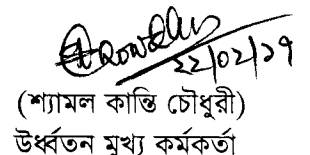 ২২/০২/১৭
(শ্যামল কান্তি চৌধুরী)
উর্ধ্বতন মূখ্য কর্মকর্তা